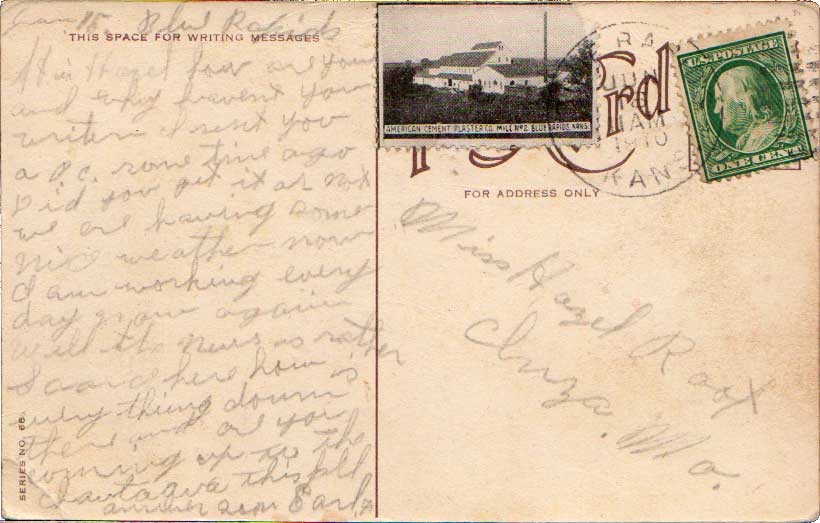 Blue Rapids
THIS SPACE FOR WRITING MESSAGES
Miss Hazel how are you
and why havent you
writen I sent you
a p.c. some time ago
Did you get it or not
we are having some
nice weather now
I am working every
day now again
well the news is rather
Scarce here how is
every thing down
there and are you
coming up to the
Chautaqua this fall
answer soon Earl
SERIES NO. 68
AMERICAN CEMENT PLASTER CO. MILL No 2. BLUE RAPIDS, KANS.
Card
FOR ADDRESS ONLY
AM
1910
KANS
U.S. POSTAGE
ONE CENT
Miss Hazel Root
Mo.